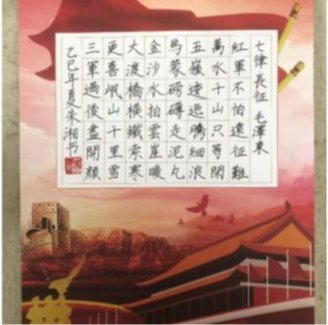 七律長征 毛澤東
紅軍不怕遠征難
萬水千山只等閒
五嶺逶迤騰細浪
烏蒙磅礴走泥丸
金沙水拍雲崖暖
大渡橋橫鐵索寒
更喜岷山千里雪
三軍過後盡開顏
乙巳年夏朱湘书